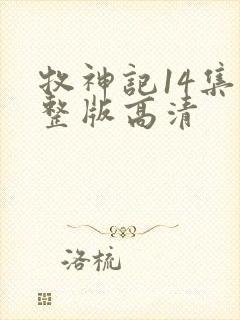 牧神記14集
整版高清
洛梳